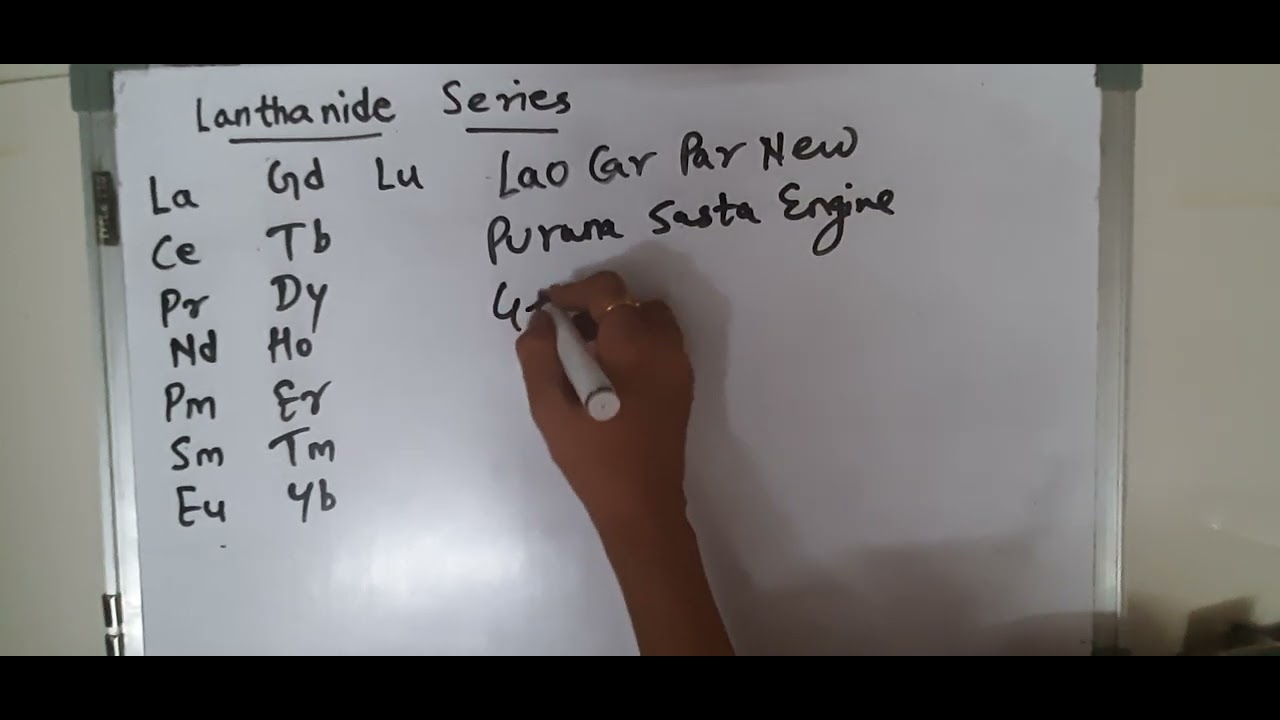 Lanthanide Series
La Gd Lu Lao Car Par New
Ce Tb Purana Sasta Engine
Pr Dy G
Nd Ho
Pm Er
Sm Tm
Eu Yb